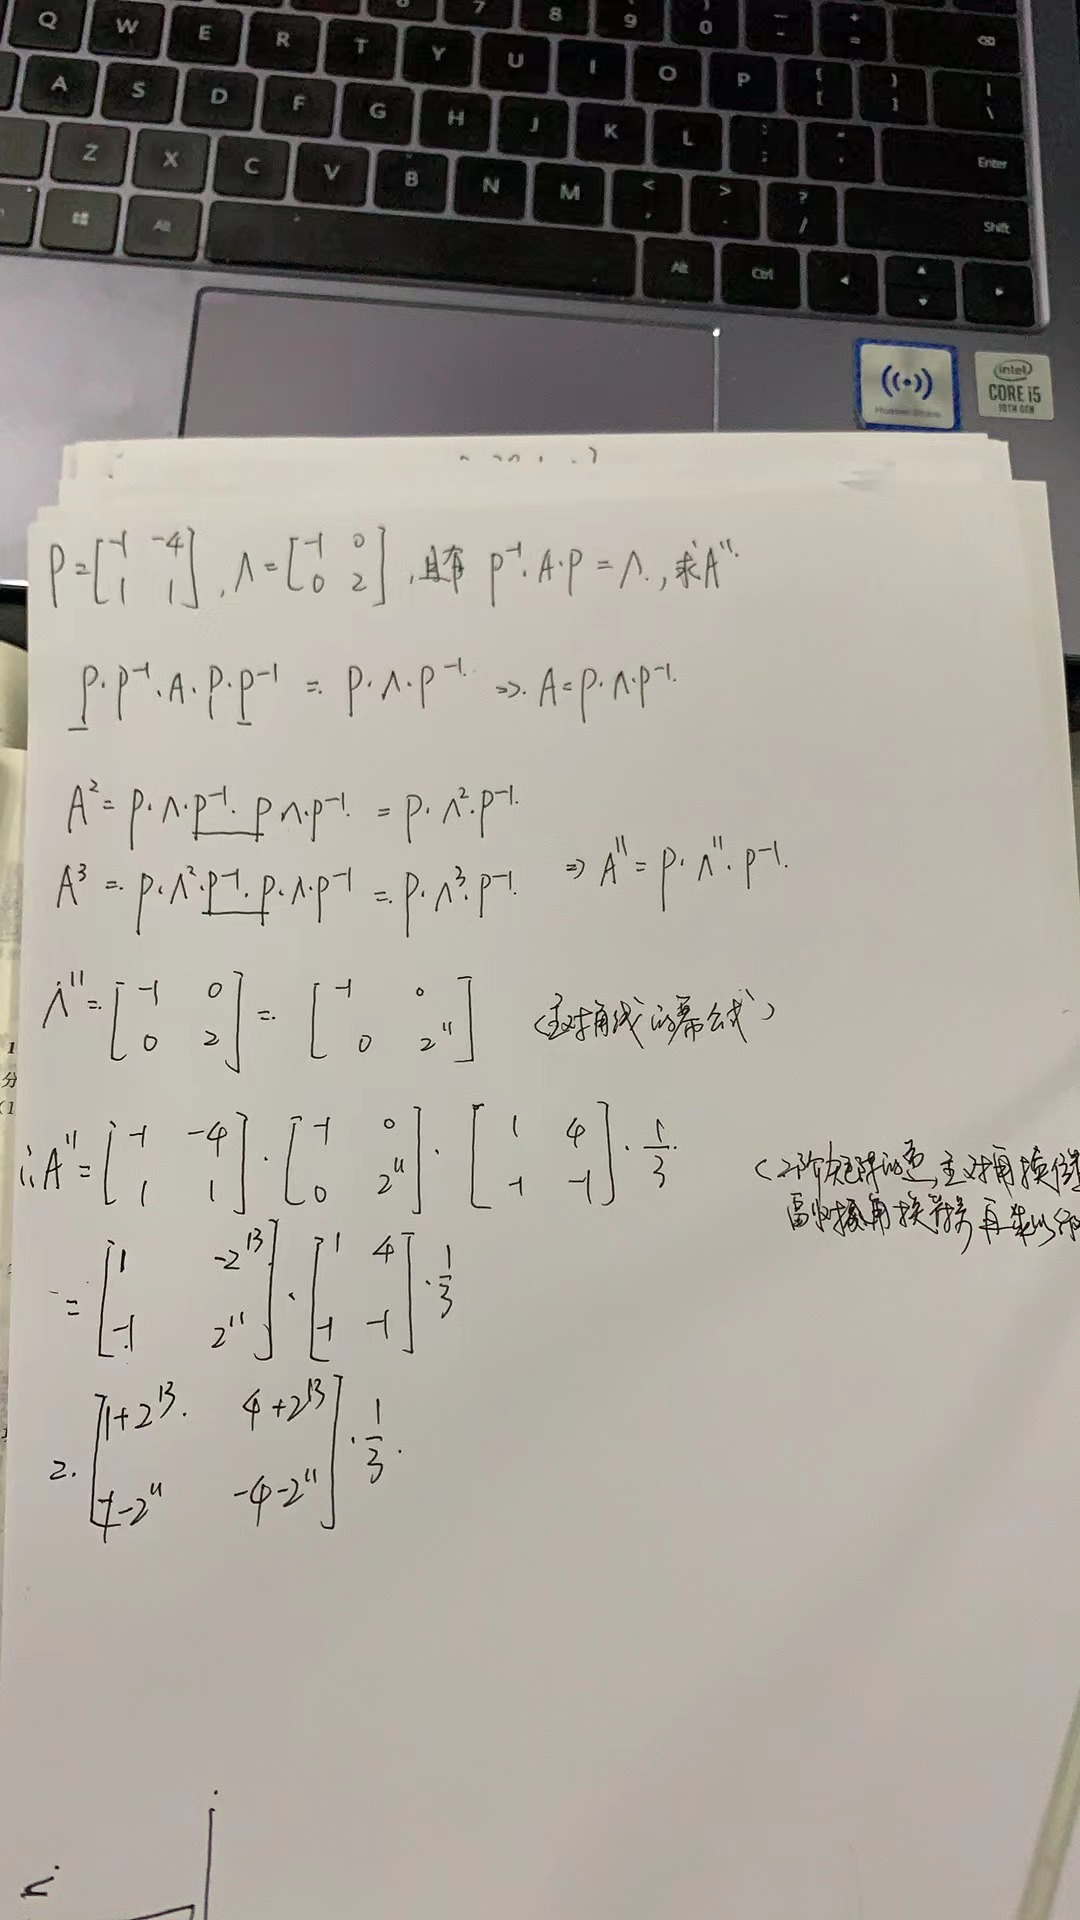 7 8 9 0 - =
Q W E R T Y U I O P { [ } ] | \
A S D F G H J K L : ; " '
Z X C V B N M < , > . ? / Enter
Alt Shift
Alt Ctrl
Huawei Share
intel CORE i5 10TH GEN
P=[-1 -4; 1 1], Λ=[-1 0; 0 2], 且有 P⁻¹·A·P=Λ., 求A¹¹.
P·P⁻¹·A·P·P⁻¹ = P·Λ·P⁻¹. ⇒ A=P·Λ·P⁻¹.
A²=P·Λ·P⁻¹·PΛ·P⁻¹ = P·Λ²·P⁻¹.
A³=P·Λ²·P⁻¹·P·Λ·P⁻¹ = P·Λ³·P⁻¹. ⇒ A¹¹=P·Λ¹¹·P⁻¹.
Λ¹¹=[-1 0; 0 2]=[-1 0; 0 2¹¹] (主对角线的幂公式)
∴A¹¹=[-1 -4; 1 1]·[-1 0; 0 2¹¹]·[1 4; -1 -1]·1/3.
(2阶矩阵的逆,主对角换位
副对角换 再乘以
=[1 -2¹³; -1 2¹¹]·[1 4; -1 -1]·1/3
=[1+2¹³ 4+2¹³; -1-2¹¹ -4-2¹¹]·1/3.
1
分
(1